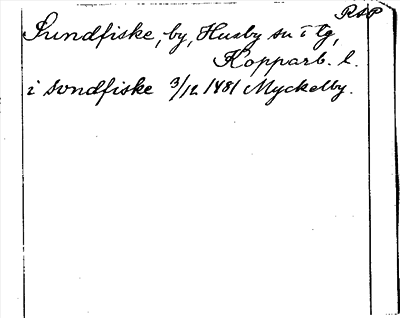 RAP
Sundfiske, by, Husby sn i tg,
Kopparb. l.
i svndfiske 3/12 1481 Myckelby.